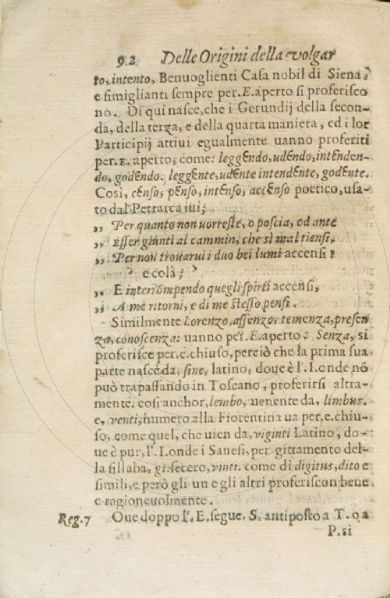 92 Delle Origini della volgar
to, intento, Benuoglienti Casa nobil di Siena,
e simiglianti sempre per. E. aperto si proferisco
no. Di qui nasce, che i Gerundij della secon-
da, della terza, e della quarta maniera, ed i lor
Participij attiui egualmente uanno proferiti
per. E. aperto, come: leggendo, udendo, intenden-
do, godendo. leggente, udente intendente, godente.
Così, censo, penso, intenso, accenso poetico, usa-
to dal Petrarca iui;
„ Per quanto non uorreste, o poscia, od ante
„ Esser giunti al cammin, che sì mal tiensi,
„ Per non trouarui i duo bei lumi accensi:
e colà;
„ E interrompendo quegli spirti accensi,
„ A me ritorni, e di me stesso pensi.
Similmente Lorenzo, assenzo, temenza, presen
za, conoscenza: uanno per. E. aperto: Senza, si
proferisce per. e. chiuso, perciò che la prima sua
parte nasce da, sine, latino, doue è l'. I. onde nó
può trapassando in Toscano, proferirsi altra-
mente. così anchor, lembo, uenente da, limbus.
e, venti, numero alla Fiorentina ua per. e. chiu-
so, come quel, che uien da, viginti Latino, do-
ue è pur, l'. I. onde i Sanesi, per gittamento del-
la sillaba, gi. fecero, vinti. come di digitus, dito e
simili, e però gli un e gli altri proferiscon bene
e ragioneuolmente.
Reg. 7 Oue doppo l'. E. segue. S. antiposto a T. o a
P. si